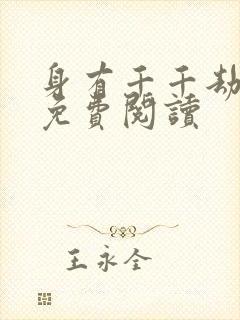 身有千千劫
免費閱讀
王永全